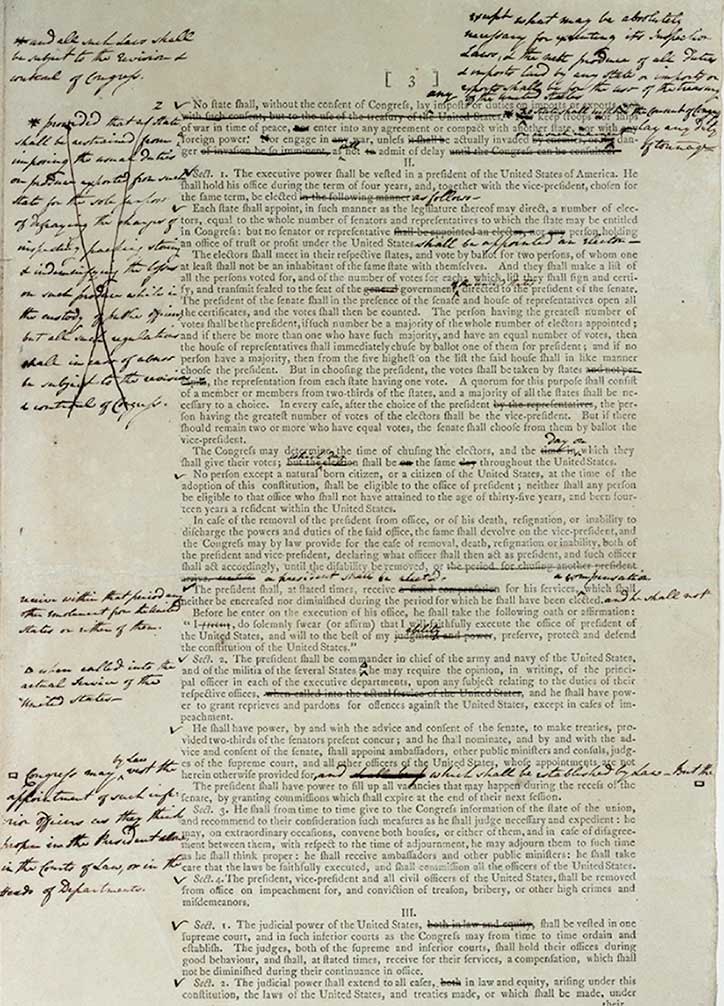 * and all such Laws shall
be subject to the Revision &
controul of Congress.
except what may be absolutely
necessary for executing its Inspection
Laws, & the nett produce of all Duties
& imposts laid by any State on imports or
exports shall be for the use of the treasury
of the United States
[ 3 ]
No state shall, without the consent of Congress, lay imposts or duties on imports or exports,
with such consent, but to the use of the treasury of the United States. keep troops nor ships
of war in time of peace, nor enter into any agreement or compact with another state, nor with any
foreign power. Nor engage in any war, unless it shall be actually invaded by enemies, or the dan-
ger of invasion be so imminent, as not to admit of delay until the Congress can be consulted.
of tonnage
* provided that no State
shall be restrained from
imposing the usual duties
on produce exported from such
State for the sole purpose
of defraying the charges of
inspecting packing storing
& indemnifying the losses
on such produce while in
the custody of public officers
but all such regulations
shall in case of abuse
be subject to the revision
& controul of Congress.
II.
Sect. 1. The executive power shall be vested in a president of the United States of America. He
shall hold his office during the term of four years, and, together with the vice-president, chosen for
the same term, be elected in the following manner as follows
Each state shall appoint, in such manner as the legislature thereof may direct, a number of elec-
tors, equal to the whole number of senators and representatives to which the state may be entitled
in Congress: but no senator or representative shall be appointed an elector, nor any person holding
an office of trust or profit under the United States shall be appointed an elector
The electors shall meet in their respective states, and vote by ballot for two persons, of whom one
at least shall not be an inhabitant of the same state with themselves. And they shall make a list of
all the persons voted for, and of the number of votes for each; which list they shall sign and certi-
fy, and transmit sealed to the seat of the general government, directed to the president of the senate.
The president of the senate shall in the presence of the senate and house of representatives open all
the certificates, and the votes shall then be counted. The person having the greatest number of
votes shall be the president, if such number be a majority of the whole number of electors appointed;
and if there be more than one who have such majority, and have an equal number of votes, then
the house of representatives shall immediately chuse by ballot one of them for president; and if no
person have a majority, then from the five highest on the list the said house shall in like manner
choose the president. But in choosing the president, the votes shall be taken by states and not per
capita, the representation from each state having one vote. A quorum for this purpose shall consist
of a member or members from two-thirds of the states, and a majority of all the states shall be ne-
cessary to a choice. In every case, after the choice of the president by the representatives, the per-
son having the greatest number of votes of the electors shall be the vice-president. But if there
should remain two or more who have equal votes, the senate shall choose from them by ballot the
vice-president.
day on
The Congress may determine the time of chusing the electors, and the time in which they
shall give their votes; but the election shall be on the same day throughout the United States.
No person except a natural born citizen, or a citizen of the United States, at the time of the
adoption of this constitution, shall be eligible to the office of president; neither shall any person
be eligible to that office who shall not have attained to the age of thirty-five years, and been four-
teen years a resident within the United States.
In case of the removal of the president from office, or of his death, resignation, or inability to
discharge the powers and duties of the said office, the same shall devolve on the vice-president, and
the Congress may by law provide for the case of removal, death, resignation or inability, both of
the president and vice-president, declaring what officer shall then act as president, and such officer
shall act accordingly, until the disability be removed, or the period for chusing another president
a president shall be elected.
a compensation
The president shall, at stated times, receive a fixed compensation for his services, which shall
neither be encreased nor diminished during the period for which he shall have been elected. and he shall not
receive within that period any
other emolument from the United
States or either of them.
Before he enter on the execution of his office, he shall take the following oath or affirmation:
"I        , do solemnly swear (or affirm) that I will faithfully execute the office of president of
the United States, and will to the best of my judgment and power, preserve, protect and defend
ability
the constitution of the United States."
Sect. 2. The president shall be commander in chief of the army and navy of the United States,
and of the militia of the several States he may require the opinion, in writing, of the princi-
pal officer in each of the executive departments, upon any subject relating to the duties of their
respective offices, when called into the actual service of the United States, and he shall have pow-
er to grant reprieves and pardons for offences against the United States, except in cases of im-
peachment.
when called into the
actual Service of the
United States
He shall have power, by and with the advice and consent of the senate, to make treaties, pro-
vided two-thirds of the senators present concur; and he shall nominate, and by and with the ad-
vice and consent of the senate, shall appoint ambassadors, other public ministers and consuls, judg-
es of the supreme court, and all other officers of the United States, whose appointments are not
herein otherwise provided for, and which shall be established by Law But the
Congress may by Law vest the
appointment of such infe-
rior Officers as they think
proper in the President alone,
in the Courts of Law, or in the
Heads of Departments.
The president shall have power to fill up all vacancies that may happen during the recess of the
senate, by granting commissions which shall expire at the end of their next session.
Sect. 3. He shall from time to time give to the Congress information of the state of the union,
and recommend to their consideration such measures as he shall judge necessary and expedient: he
may, on extraordinary occasions, convene both houses, or either of them, and in case of disagree-
ment between them, with respect to the time of adjournment, he may adjourn them to such time
as he shall think proper: he shall receive ambassadors and other public ministers: he shall take
care that the laws be faithfully executed, and shall commission all the officers of the United States.
Sect. 4. The president, vice-president and all civil officers of the United States, shall be removed
from office on impeachment for, and conviction of treason, bribery, or other high crimes and
misdemeanors,
III.
Sect. 1. The judicial power of the United States, both in law and equity, shall be vested in one
supreme court, and in such inferior courts as the Congress may from time to time ordain and
establish. The judges, both of the supreme and inferior courts, shall hold their offices during
good behaviour, and shall, at stated times, receive for their services, a compensation, which shall
not be diminished during their continuance in office.
Sect. 2. The judicial power shall extend to all cases, both in law and equity, arising under this
constitution, the laws of the United States, and treaties made, or which shall be made, under
their